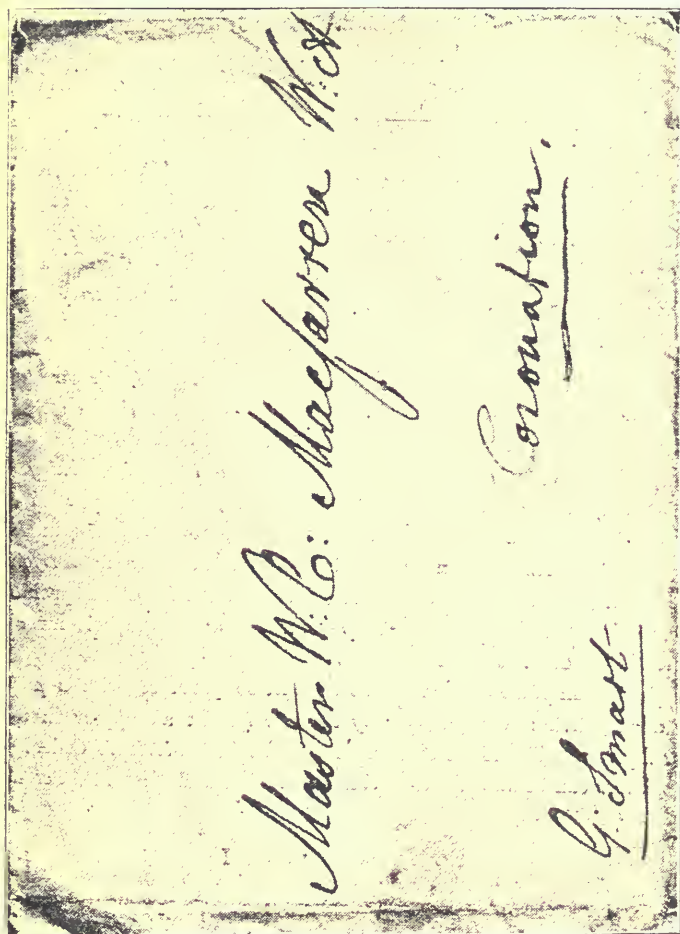 Master W. C: Macfarren W: A
Coronation.
G. Smart